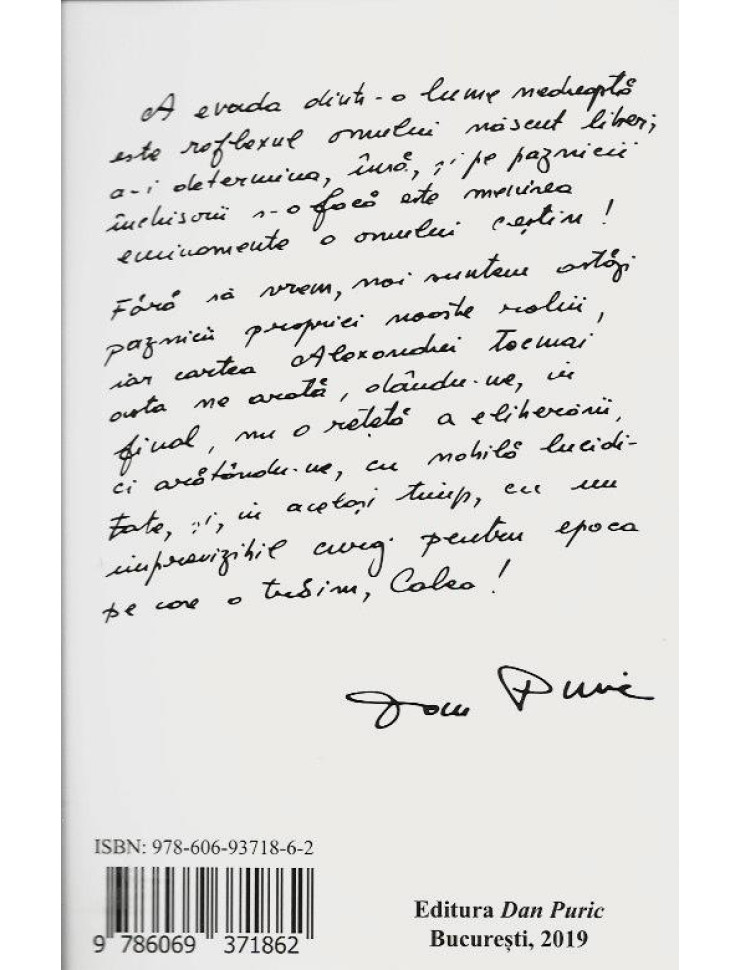 A evada dintr-o lume nedreaptă
este reflexul omului născut liber;
a-i determina, însă, și pe paznicii
închisorii s-o facă este menirea
eminamente a omului creștin!
Fără să vrem, noi suntem astăzi
paznicii propriei noastre robii,
iar cartea Alexandrei tocmai
asta ne arată, dându-ne, in
final, nu o rețetă a eliberării,
ci arătându-ne, cu nobilă lucidi-
tate, și, in același timp, cu un
imprevizibil curaj pentru epoca
pe care o trăim, Calea!
Dan Puric
ISBN: 978-606-93718-6-2
9 786069 371862
Editura Dan Puric
București, 2019